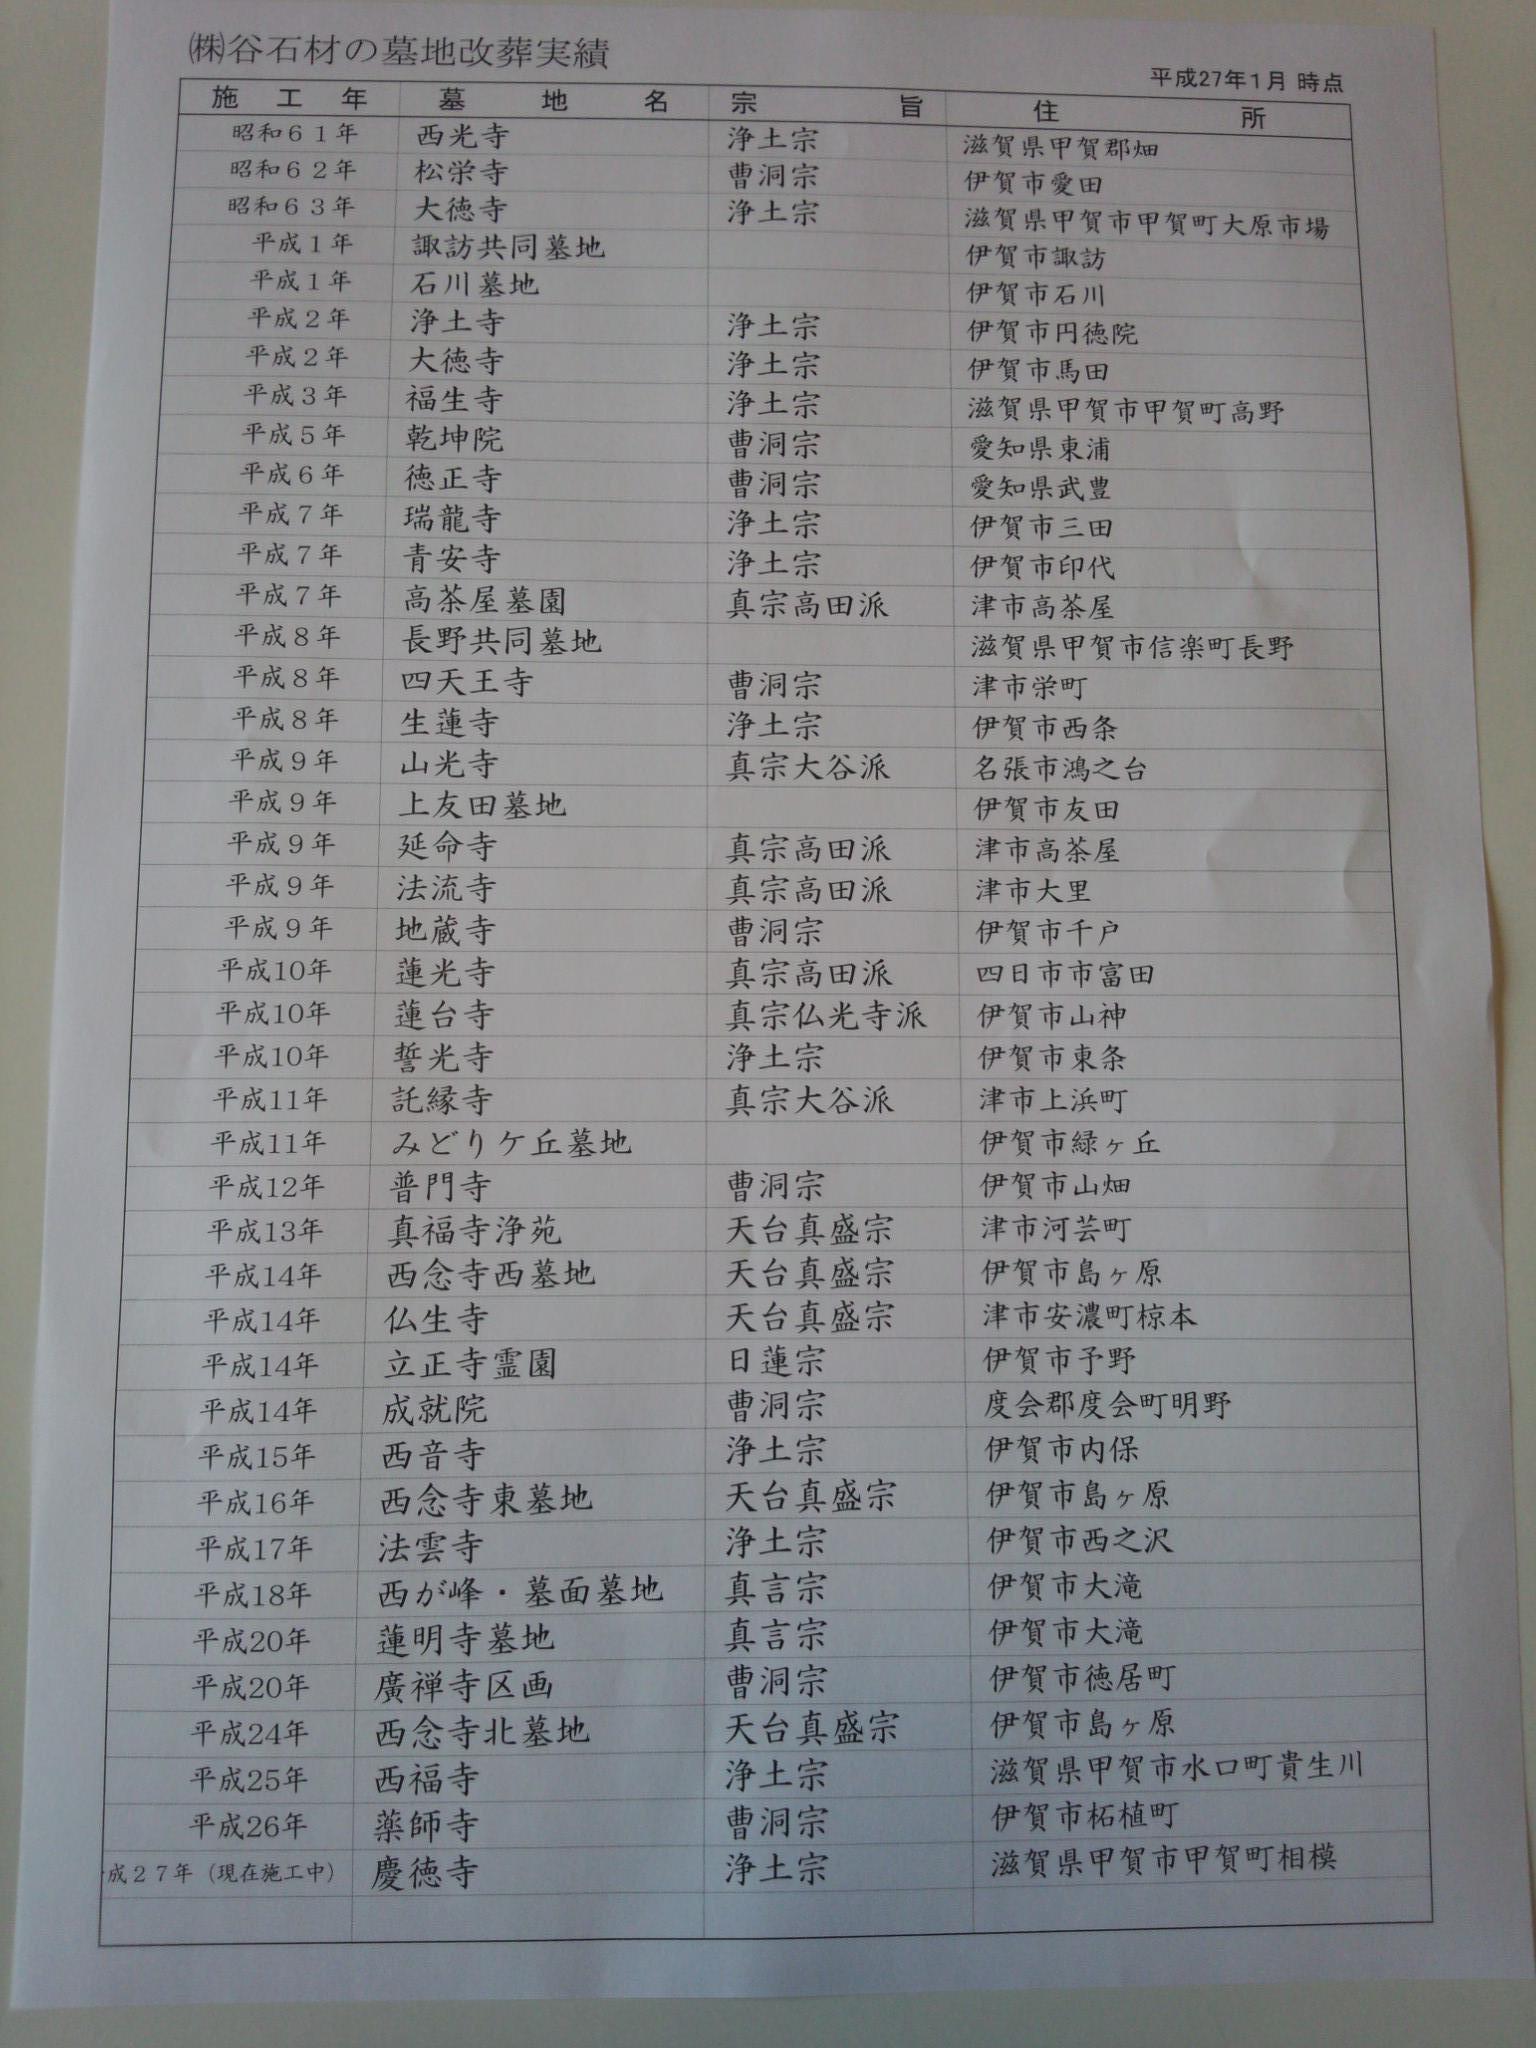 ㈱谷石材の墓地改葬実績
平成27年1月 時点
施工年 墓地名 宗旨 住所
昭和61年 西光寺 浄土宗 滋賀県甲賀郡畑
昭和62年 松栄寺 曹洞宗 伊賀市愛田
昭和63年 大徳寺 浄土宗 滋賀県甲賀市甲賀町大原市場
平成1年 諏訪共同墓地 伊賀市諏訪
平成1年 石川墓地 伊賀市石川
平成2年 浄土寺 浄土宗 伊賀市円徳院
平成2年 大徳寺 浄土宗 伊賀市馬田
平成3年 福生寺 浄土宗 滋賀県甲賀市甲賀町高野
平成5年 乾坤院 曹洞宗 愛知県東浦
平成6年 徳正寺 曹洞宗 愛知県武豊
平成7年 瑞龍寺 浄土宗 伊賀市三田
平成7年 青安寺 浄土宗 伊賀市印代
平成7年 高茶屋墓園 真宗高田派 津市高茶屋
平成8年 長野共同墓地 滋賀県甲賀市信楽町長野
平成8年 四天王寺 曹洞宗 津市栄町
平成8年 生蓮寺 浄土宗 伊賀市西条
平成9年 山光寺 真宗大谷派 名張市鴻之台
平成9年 上友田墓地 伊賀市友田
平成9年 延命寺 真宗高田派 津市高茶屋
平成9年 法流寺 真宗高田派 津市大里
平成9年 地蔵寺 曹洞宗 伊賀市千戸
平成10年 蓮光寺 真宗高田派 四日市市富田
平成10年 蓮台寺 真宗仏光寺派 伊賀市山神
平成10年 誓光寺 浄土宗 伊賀市東条
平成11年 託縁寺 真宗大谷派 津市上浜町
平成11年 みどりケ丘墓地 伊賀市緑ヶ丘
平成12年 普門寺 曹洞宗 伊賀市山畑
平成13年 真福寺浄苑 天台真盛宗 津市河芸町
平成14年 西念寺西墓地 天台真盛宗 伊賀市島ヶ原
平成14年 仏生寺 天台真盛宗 津市安濃町椋本
平成14年 立正寺霊園 日蓮宗 伊賀市予野
平成14年 成就院 曹洞宗 度会郡度会町明野
平成15年 西音寺 浄土宗 伊賀市内保
平成16年 西念寺東墓地 天台真盛宗 伊賀市島ヶ原
平成17年 法雲寺 浄土宗 伊賀市西之沢
平成18年 西が峰・墓面墓地 真言宗 伊賀市大滝
平成20年 蓮明寺墓地 真言宗 伊賀市大滝
平成20年 廣禅寺区画 曹洞宗 伊賀市徳居町
平成24年 西念寺北墓地 天台真盛宗 伊賀市島ヶ原
平成25年 西福寺 浄土宗 滋賀県甲賀市水口町貴生川
平成26年 薬師寺 曹洞宗 伊賀市柘植町
成27年（現在施工中） 慶徳寺 浄土宗 滋賀県甲賀市甲賀町相模